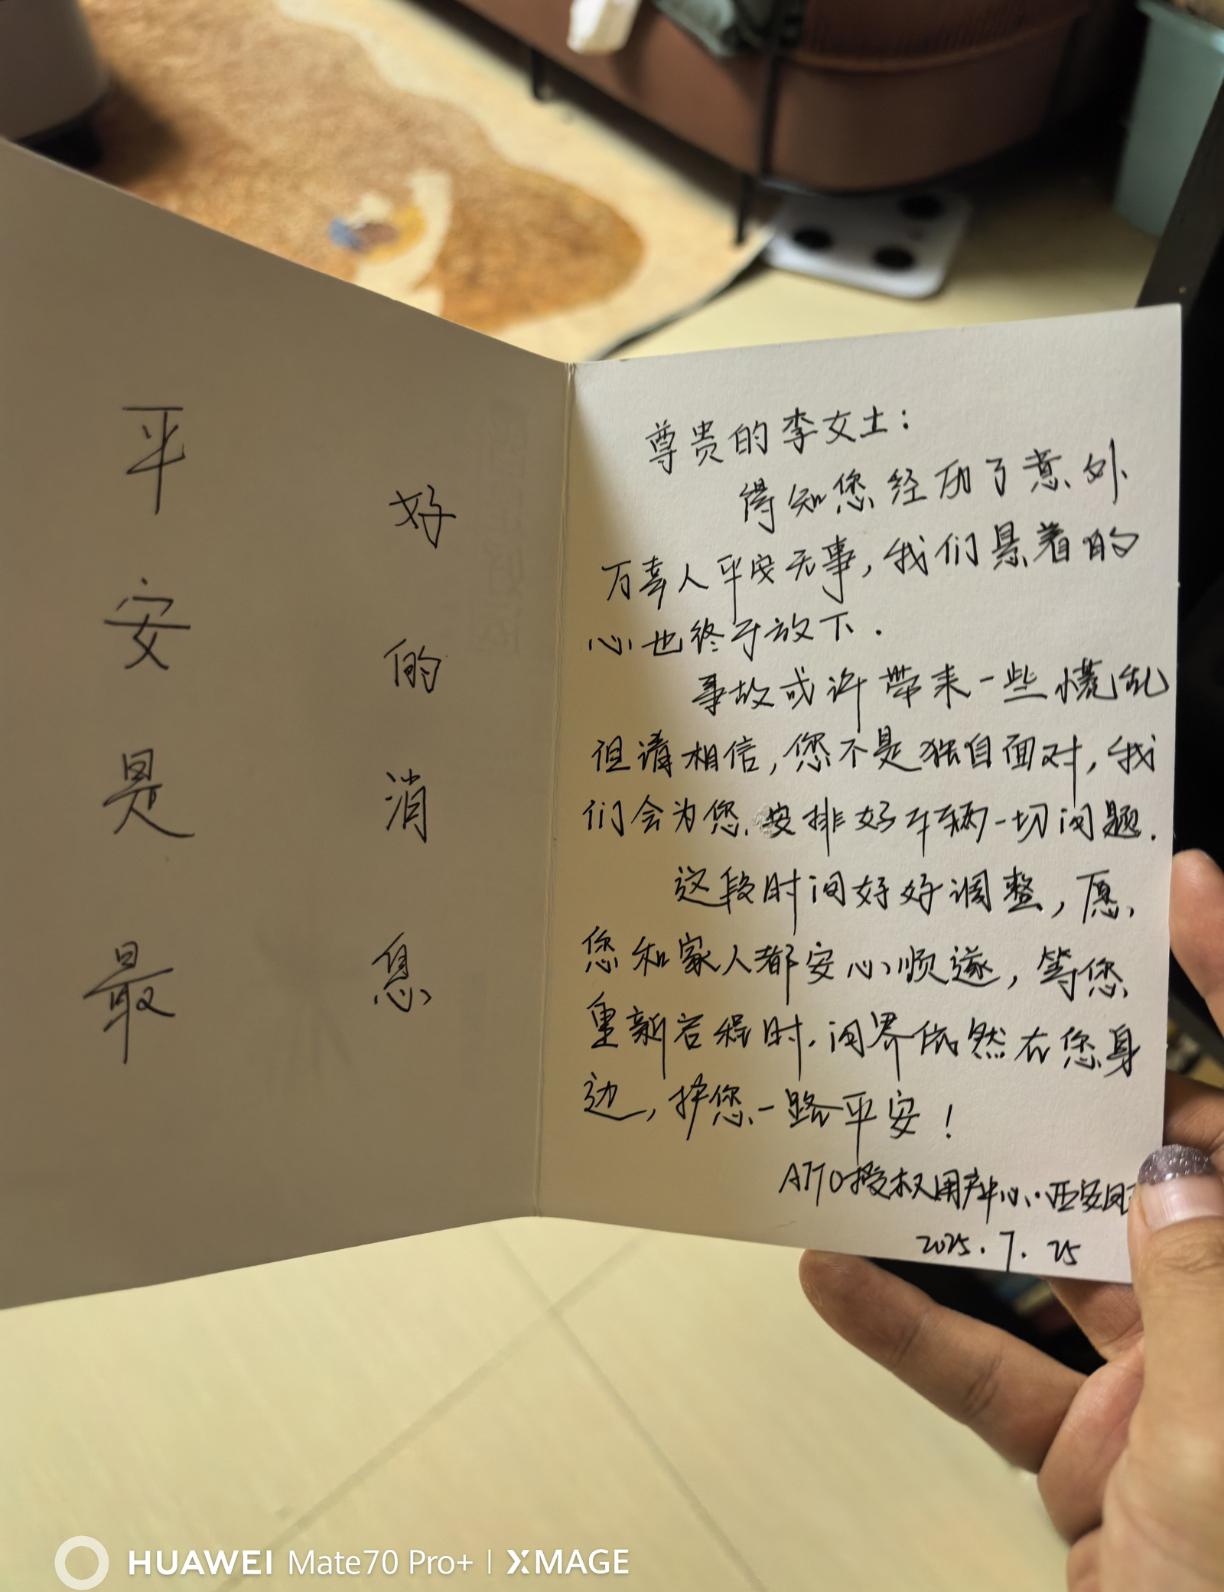 平安是最
好的消息
尊贵的李女士：
得知您经历了意外
万幸人平安无事，我们悬着的
心也终于放下.
事故或许带来一些慌乱
但请相信，您不是独自面对，我
们会为您.安排好车辆一切问题.
这段时间好好调整，愿
您和家人都安心顺遂，等您
重新启程时.问界依然在您身
边，护您一路平安！
AITO授权用户中心·西安
2025.7.25
HUAWEI Mate70 Pro+ | XMAGE